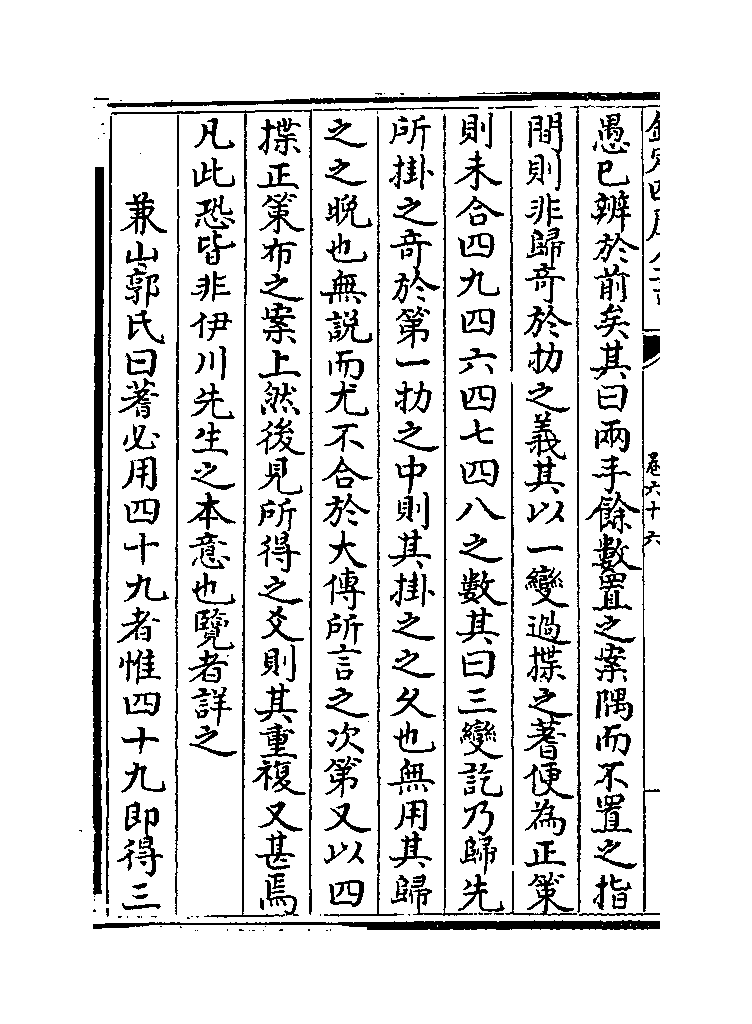 愚已辨於前矣其曰兩手餘數置之案隅而不置之指
間則非歸奇於扐之義其以一變過揲之蓍便為正策
則未合四九四六四七四八之數其曰三變訖乃歸先
所掛之奇於第一扐之中則其掛之之久也無用其歸
之之晩也無説而尤不合於大傳所言之次第又以四
揲正策布之案上然後見所得之爻則其重複又甚焉
凡此恐皆非伊川先生之本意也覽者詳之
兼山郭氏曰蓍必用四十九者惟四十九即得三
卷六十六